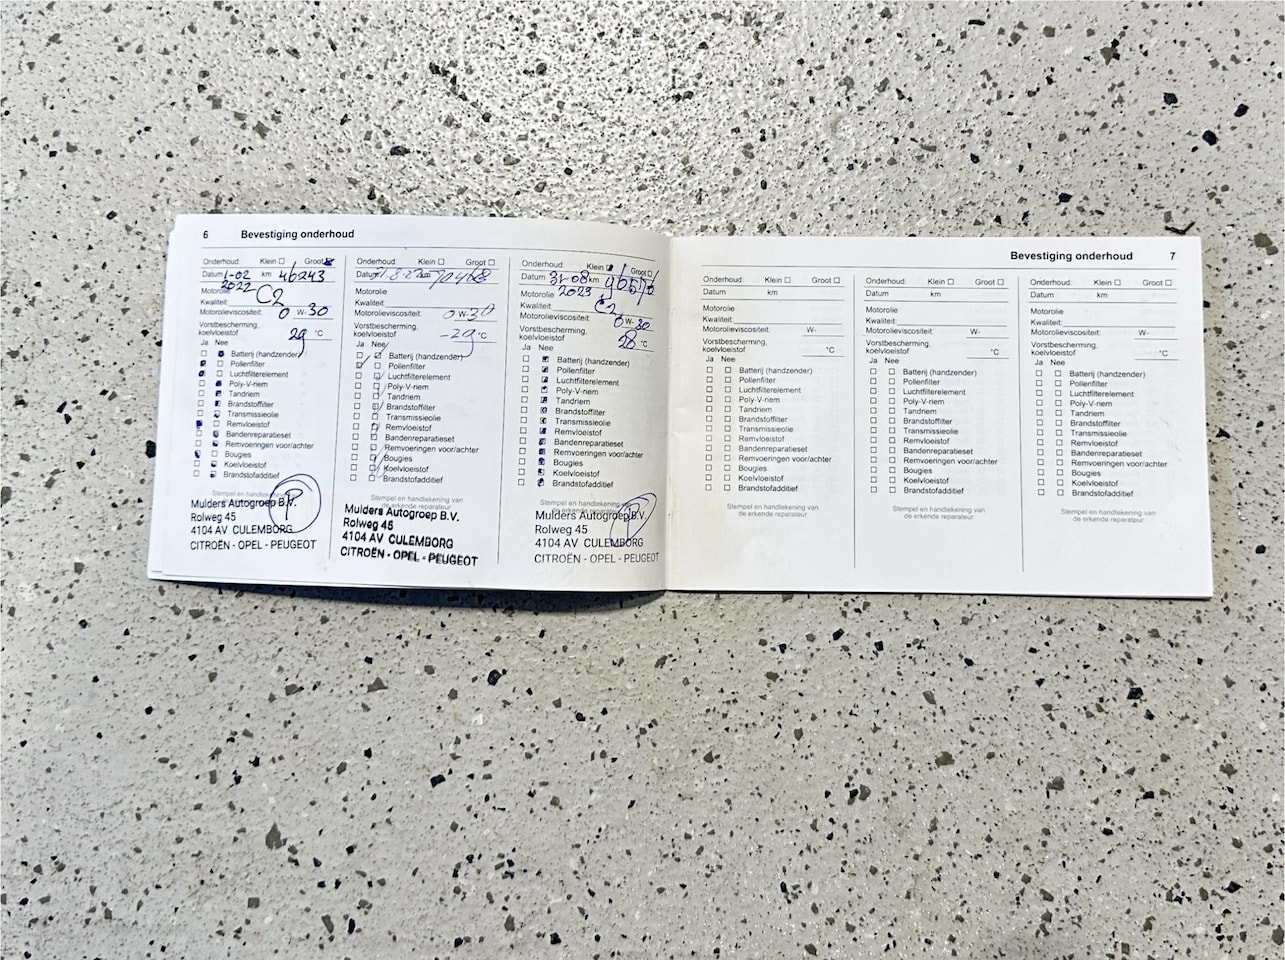 6 Bevestiging onderhoud
Onderhoud: Klein Groot
Datum 1-02 km 46243
2022
Motorolie C2
Kwaliteit:
Motorolieviscositeit: 0 W-30
Vorstbescherming,
koelvloeistof 29 °C
Ja Nee
Batterij (handzender)
Pollenfilter
Luchtfilterelement
Poly-V-riem
Tandriem
Brandstoffilter
Transmissieolie
Remvloeistof
Bandenreparatieset
Remvoeringen voor/achter
Bougies
Koelvloeistof
Brandstofadditief
Stempel en handtekening
Mulders Autogroep B.V.
Rolweg 45
4104 AV CULEMBORG
CITROËN - OPEL - PEUGEOT
Onderhoud: Klein Groot
Datum km
Motorolie
Kwaliteit:
Motorolieviscositeit: 0 W-30
Vorstbescherming,
koelvloeistof -29 °C
Ja Nee
Batterij (handzender)
Pollenfilter
Luchtfilterelement
Poly-V-riem
Tandriem
Brandstoffilter
Transmissieolie
Remvloeistof
Bandenreparatieset
Remvoeringen voor/achter
Bougies
Koelvloeistof
Brandstofadditief
Stempel en handtekening van
de erkende reparateur
Mulders Autogroep B.V.
Rolweg 45
4104 AV CULEMBORG
CITROËN - OPEL - PEUGEOT
Onderhoud: Klein Groot
Datum 31-08 km
2023
Motorolie
Kwaliteit: C2
Motorolieviscositeit: 0 W-30
Vorstbescherming,
koelvloeistof 28 °C
Ja Nee
Batterij (handzender)
Pollenfilter
Luchtfilterelement
Poly-V-riem
Tandriem
Brandstoffilter
Transmissieolie
Remvloeistof
Bandenreparatieset
Remvoeringen voor/achter
Bougies
Koelvloeistof
Brandstofadditief
Stempel en handtekening van
de erkende reparateur
Mulders Autogroep B.V.
Rolweg 45
4104 AV CULEMBORG
CITROËN - OPEL - PEUGEOT
Bevestiging onderhoud 7
Onderhoud: Klein Groot
Datum km
Motorolie
Kwaliteit:
Motorolieviscositeit: W-
Vorstbescherming,
koelvloeistof °C
Ja Nee
Batterij (handzender)
Pollenfilter
Luchtfilterelement
Poly-V-riem
Tandriem
Brandstoffilter
Transmissieolie
Remvloeistof
Bandenreparatieset
Remvoeringen voor/achter
Bougies
Koelvloeistof
Brandstofadditief
Stempel en handtekening van
de erkende reparateur
Onderhoud: Klein Groot
Datum km
Motorolie
Kwaliteit:
Motorolieviscositeit: W-
Vorstbescherming,
koelvloeistof °C
Ja Nee
Batterij (handzender)
Pollenfilter
Luchtfilterelement
Poly-V-riem
Tandriem
Brandstoffilter
Transmissieolie
Remvloeistof
Bandenreparatieset
Remvoeringen voor/achter
Bougies
Koelvloeistof
Brandstofadditief
Stempel en handtekening van
de erkende reparateur
Onderhoud: Klein Groot
Datum km
Motorolie
Kwaliteit:
Motorolieviscositeit: W-
Vorstbescherming,
koelvloeistof °C
Ja Nee
Batterij (handzender)
Pollenfilter
Luchtfilterelement
Poly-V-riem
Tandriem
Brandstoffilter
Transmissieolie
Remvloeistof
Bandenreparatieset
Remvoeringen voor/achter
Bougies
Koelvloeistof
Brandstofadditief
Stempel en handtekening van
de erkende reparateur